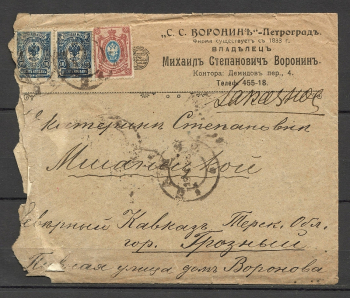 „С. С. ВОРОНИНЪ"-Петроградъ.
Фирма существуетъ съ 1863 г.
ВЛАДѢЛЕЦЪ
Михаилъ Степановичъ Воронинъ.
Контора: Демидовъ пер., 4.
Телеф. 455-18.
Заказное
Екатеринѣ Степановнѣ
Сѣверный Кавказъ Терск. Обл.
гор. Грозный
улица домъ Воронова